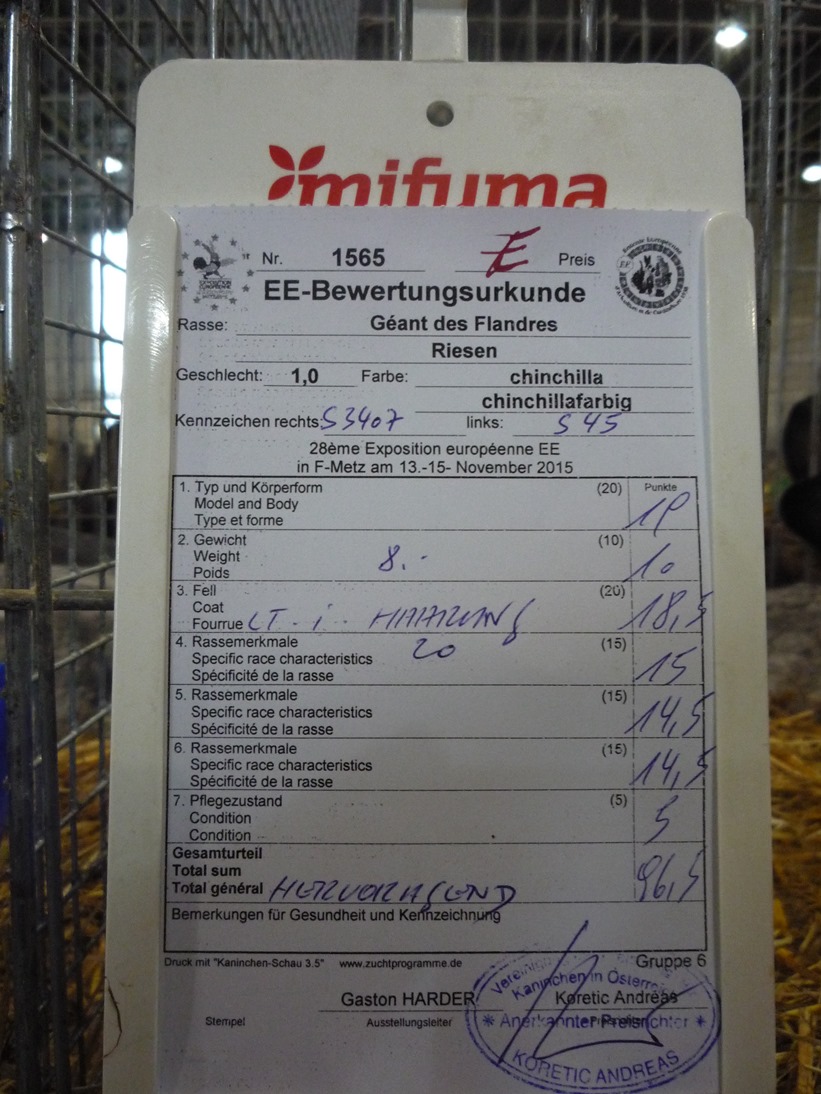 mifuma
Nr. 1565 E Preis
EE-Bewertungsurkunde
Rasse: Géant des Flandres
Riesen
Geschlecht: 1,0 Farbe: chinchilla
chinchillafarbig
Kennzeichen rechts: S3407 links: S 45
28ème Exposition européenne EE
in F-Metz am 13.-15- November 2015
1. Typ und Körperform (20) Punkte
Model and Body
Type et forme 19
2. Gewicht (10)
Weight 8.-
Poids 10
3. Fell (20)
Coat
Fourrue LT. i. HAARUNG 18,5
4. Rassemerkmale 20 (15)
Specific race characteristics
Spécificité de la rasse 15
5. Rassemerkmale (15)
Specific race characteristics
Spécificité de la rasse 14,5
6. Rassemerkmale (15)
Specific race characteristics
Spécificité de la rasse 14,5
7. Pflegezustand (5)
Condition 5
Condition
Gesamturteil
Total sum
Total général HERVORAGEND 96,5
Bemerkungen für Gesundheit und Kennzeichnung
Druck mit "Kaninchen-Schau 3.5" www.zuchtprogramme.de Gruppe 6
Kaninchen in Österreich
Gaston HARDER Koretic Andreas
Stempel Ausstellungsleiter Preisrichter
* Anerkannter Preisrichter *
KORETIC ANDREAS